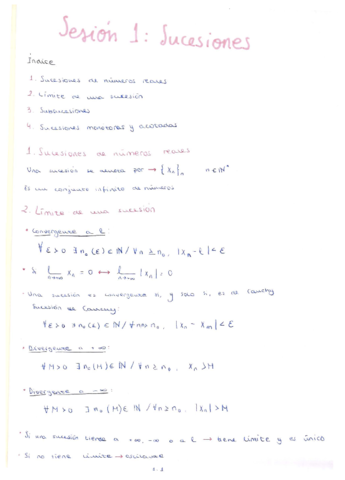 Sesión 1: Sucesiones
Índice
1. Sucesiones de números reales
2. Límite de una sucesión
3. Subsucesiones
4. Sucesiones monótonas y acotadas
1. Sucesiones de números reales
Una sucesión se denota por → {xn}n n∈ℕ*
Es un conjunto infinito de números
2. Límite de una sucesión
• Convergente a ℓ:
∀ε>0 ∃n₀(ε)∈ℕ / ∀n≥n₀, |xn-ℓ|<ε
• Si xn = 0 ↔ |xn| = 0
· Una sucesión es convergente si, y solo si, es de Cauchy
Sucesión de Cauchy:
∀ε>0 ∃n₀(ε)∈ℕ / ∀n≥n₀, |xn - xm|<ε
• Divergente a +∞:
∀M>0 ∃n₀(M)∈ℕ / ∀n≥n₀, xn>M
• Divergente a -∞:
∀M>0 ∃n₀(M)∈ℕ / ∀n≥n₀, |xn|>M
· Si una sucesión tiende a +∞, -∞ o a ℓ → tiene límite y es único
· Si no tiene límite → oscilante